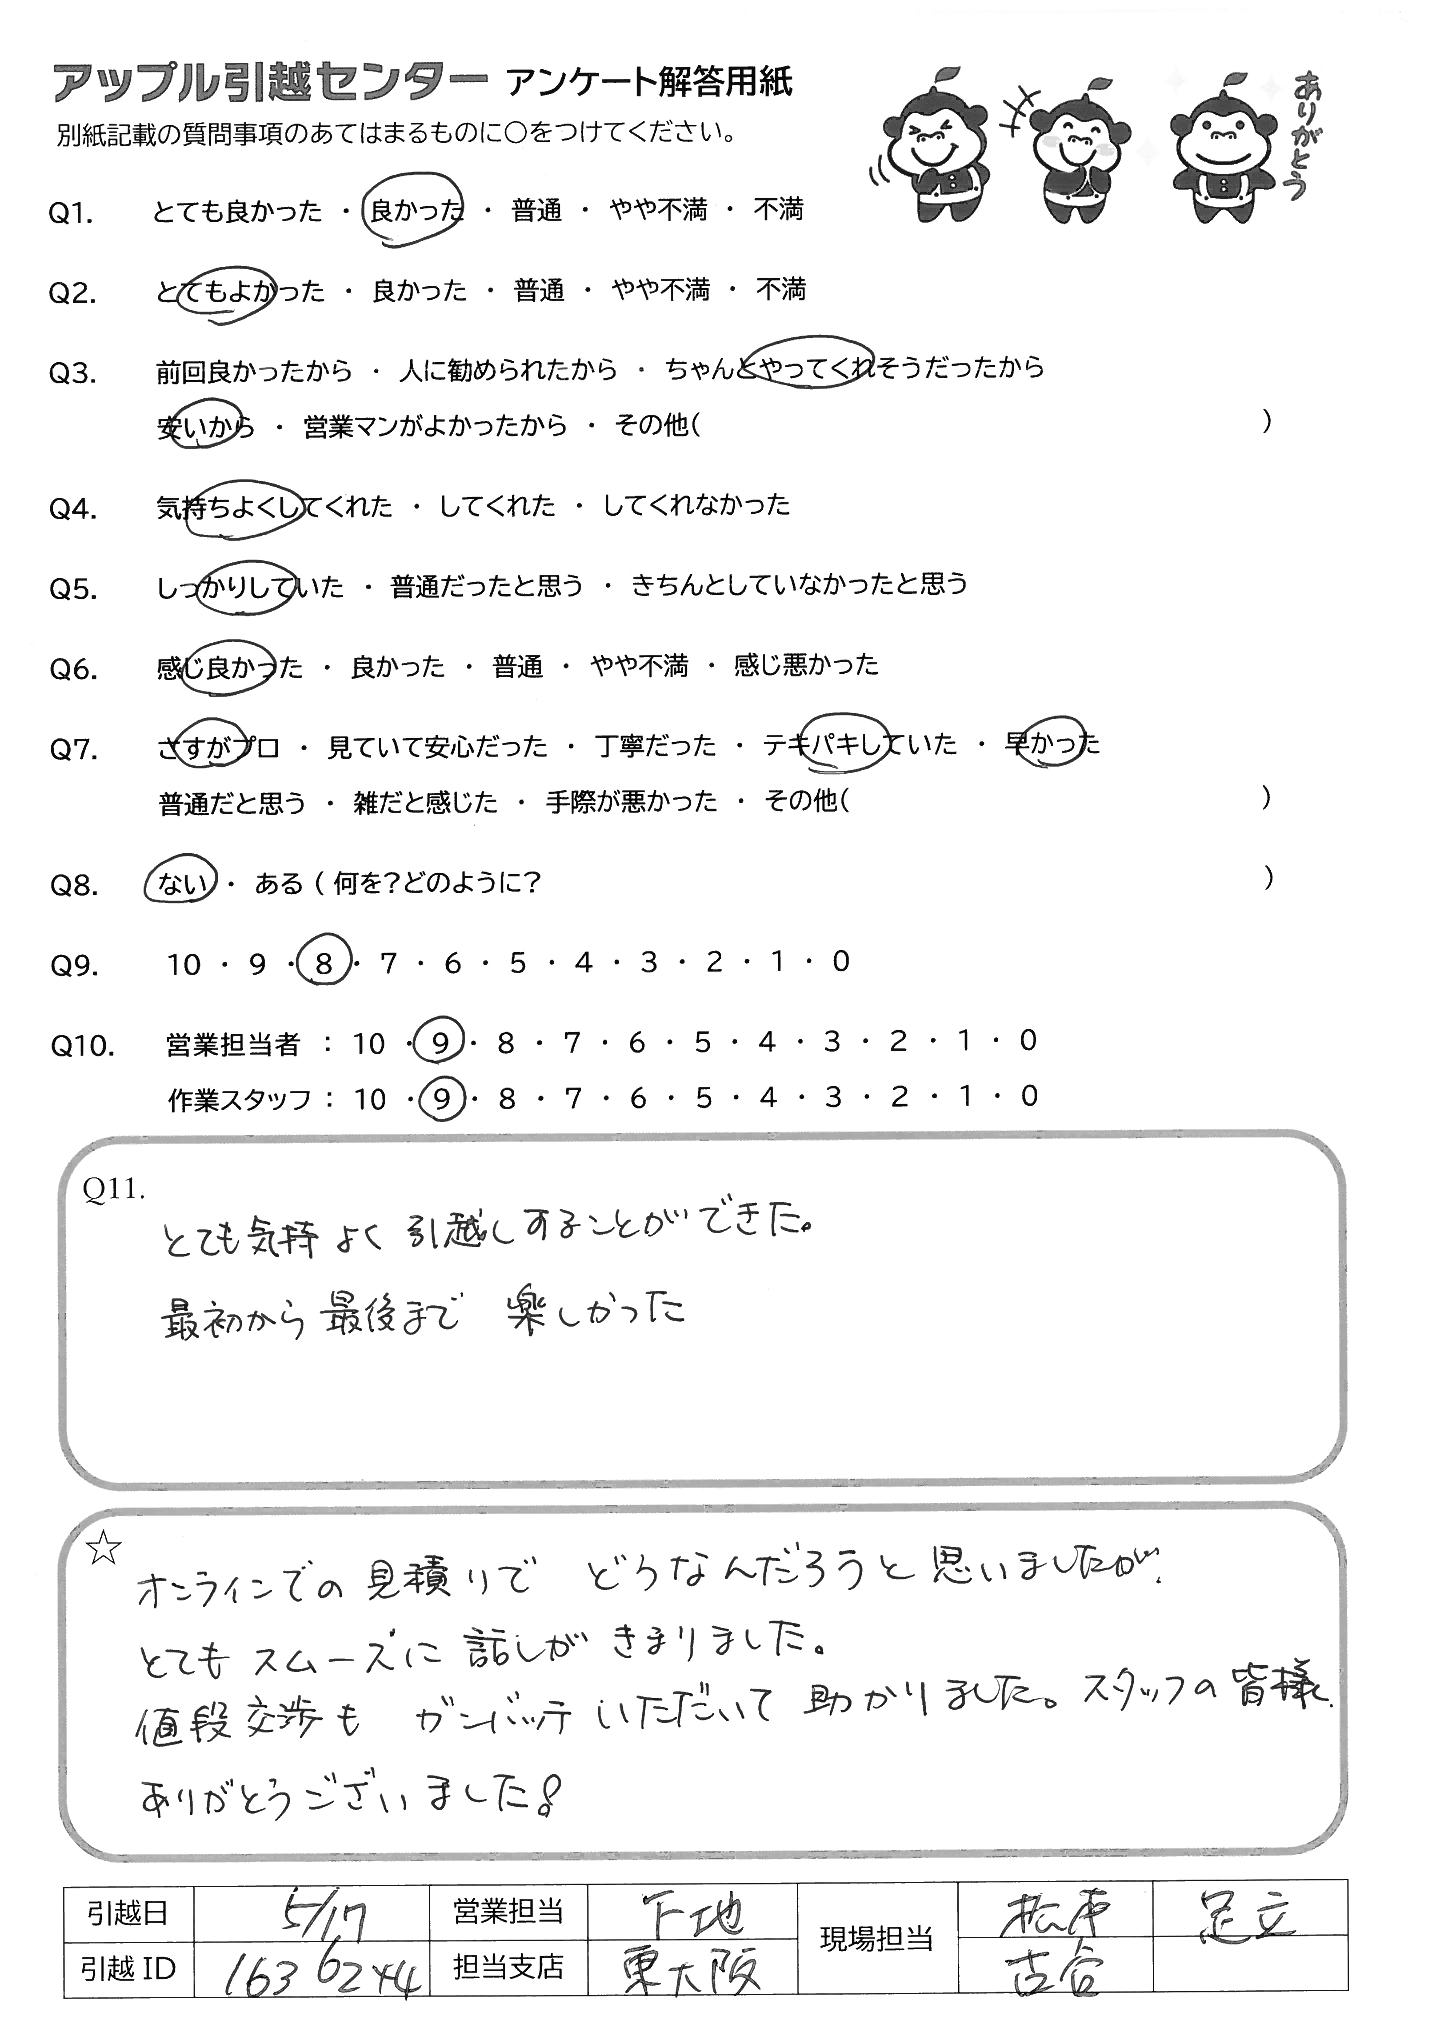 アップル引越センター アンケート解答用紙
別紙記載の質問事項のあてはまるものに○をつけてください。
ありがとう
Q1. とても良かった ・ 良かった ・ 普通 ・ やや不満 ・ 不満
Q2. とてもよかった ・ 良かった ・ 普通 ・ やや不満 ・ 不満
Q3. 前回良かったから ・ 人に勧められたから ・ ちゃんとやってくれそうだったから
安いから ・ 営業マンがよかったから ・ その他( )
Q4. 気持ちよくしてくれた ・ してくれた ・ してくれなかった
Q5. しっかりしていた ・ 普通だったと思う ・ きちんとしていなかったと思う
Q6. 感じ良かった ・ 良かった ・ 普通 ・ やや不満 ・ 感じ悪かった
Q7. さすがプロ ・ 見ていて安心だった ・ 丁寧だった ・ テキパキしていた ・ 早かった
普通だと思う ・ 雑だと感じた ・ 手際が悪かった ・ その他( )
Q8. ない ・ ある ( 何を?どのように? )
Q9. 10 ・ 9 ・ 8 ・ 7 ・ 6 ・ 5 ・ 4 ・ 3 ・ 2 ・ 1 ・ 0
Q10. 営業担当者 : 10 ・ 9 ・ 8 ・ 7 ・ 6 ・ 5 ・ 4 ・ 3 ・ 2 ・ 1 ・ 0
作業スタッフ : 10 ・ 9 ・ 8 ・ 7 ・ 6 ・ 5 ・ 4 ・ 3 ・ 2 ・ 1 ・ 0
Q11.
とても気持よく引越しすることができた。
最初から最後まで 楽しかった
☆
オンラインでの見積りで どうなんだろうと思いましたが、
とてもスムーズに話しがきまりました。
値段交渉も ガンバッテいただいて助かりました。スタッフの皆様、
ありがとうございました!
引越日 5/17 営業担当 下地 現場担当 足立
引越 ID 担当支店 東大阪 古谷